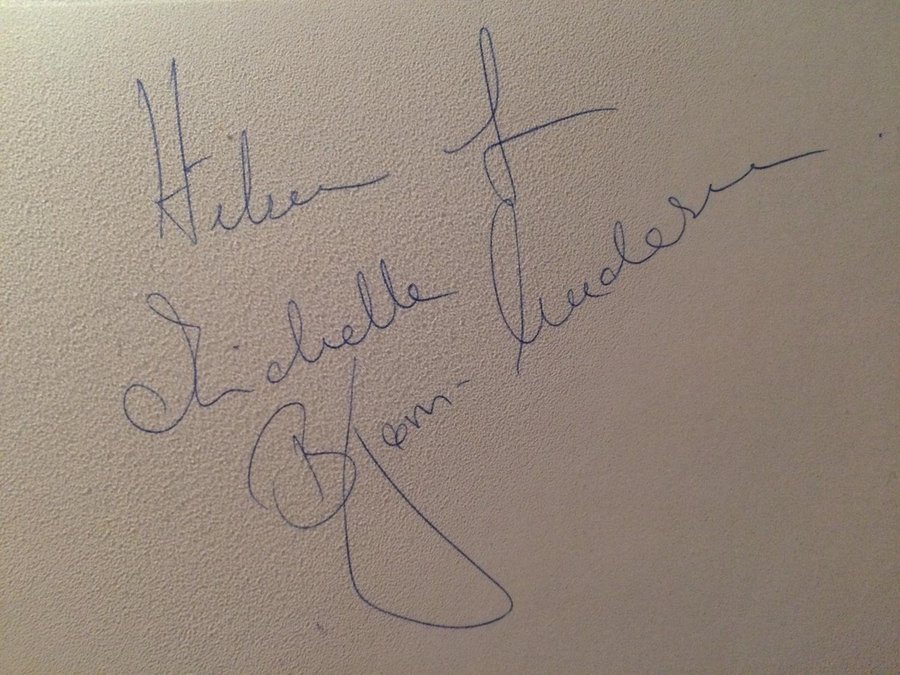 Hilsen f
Michelle
Bjørn-Andersen